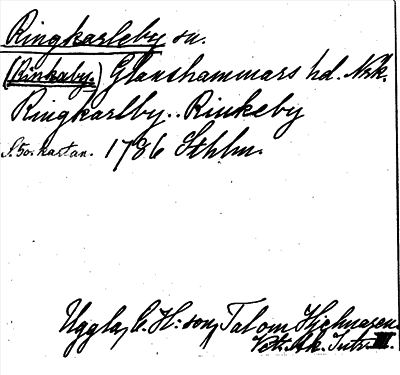 Ringkarleby sn.
(Rinkaby.) Glanshammars hd. Nrk.
Ringkarlby.. Rinkeby
S. 50. kartan. 1786 Sthlm.
Uggla, C. H:son, Tal om Hjelmaren.
Vet. Ak. Intr.